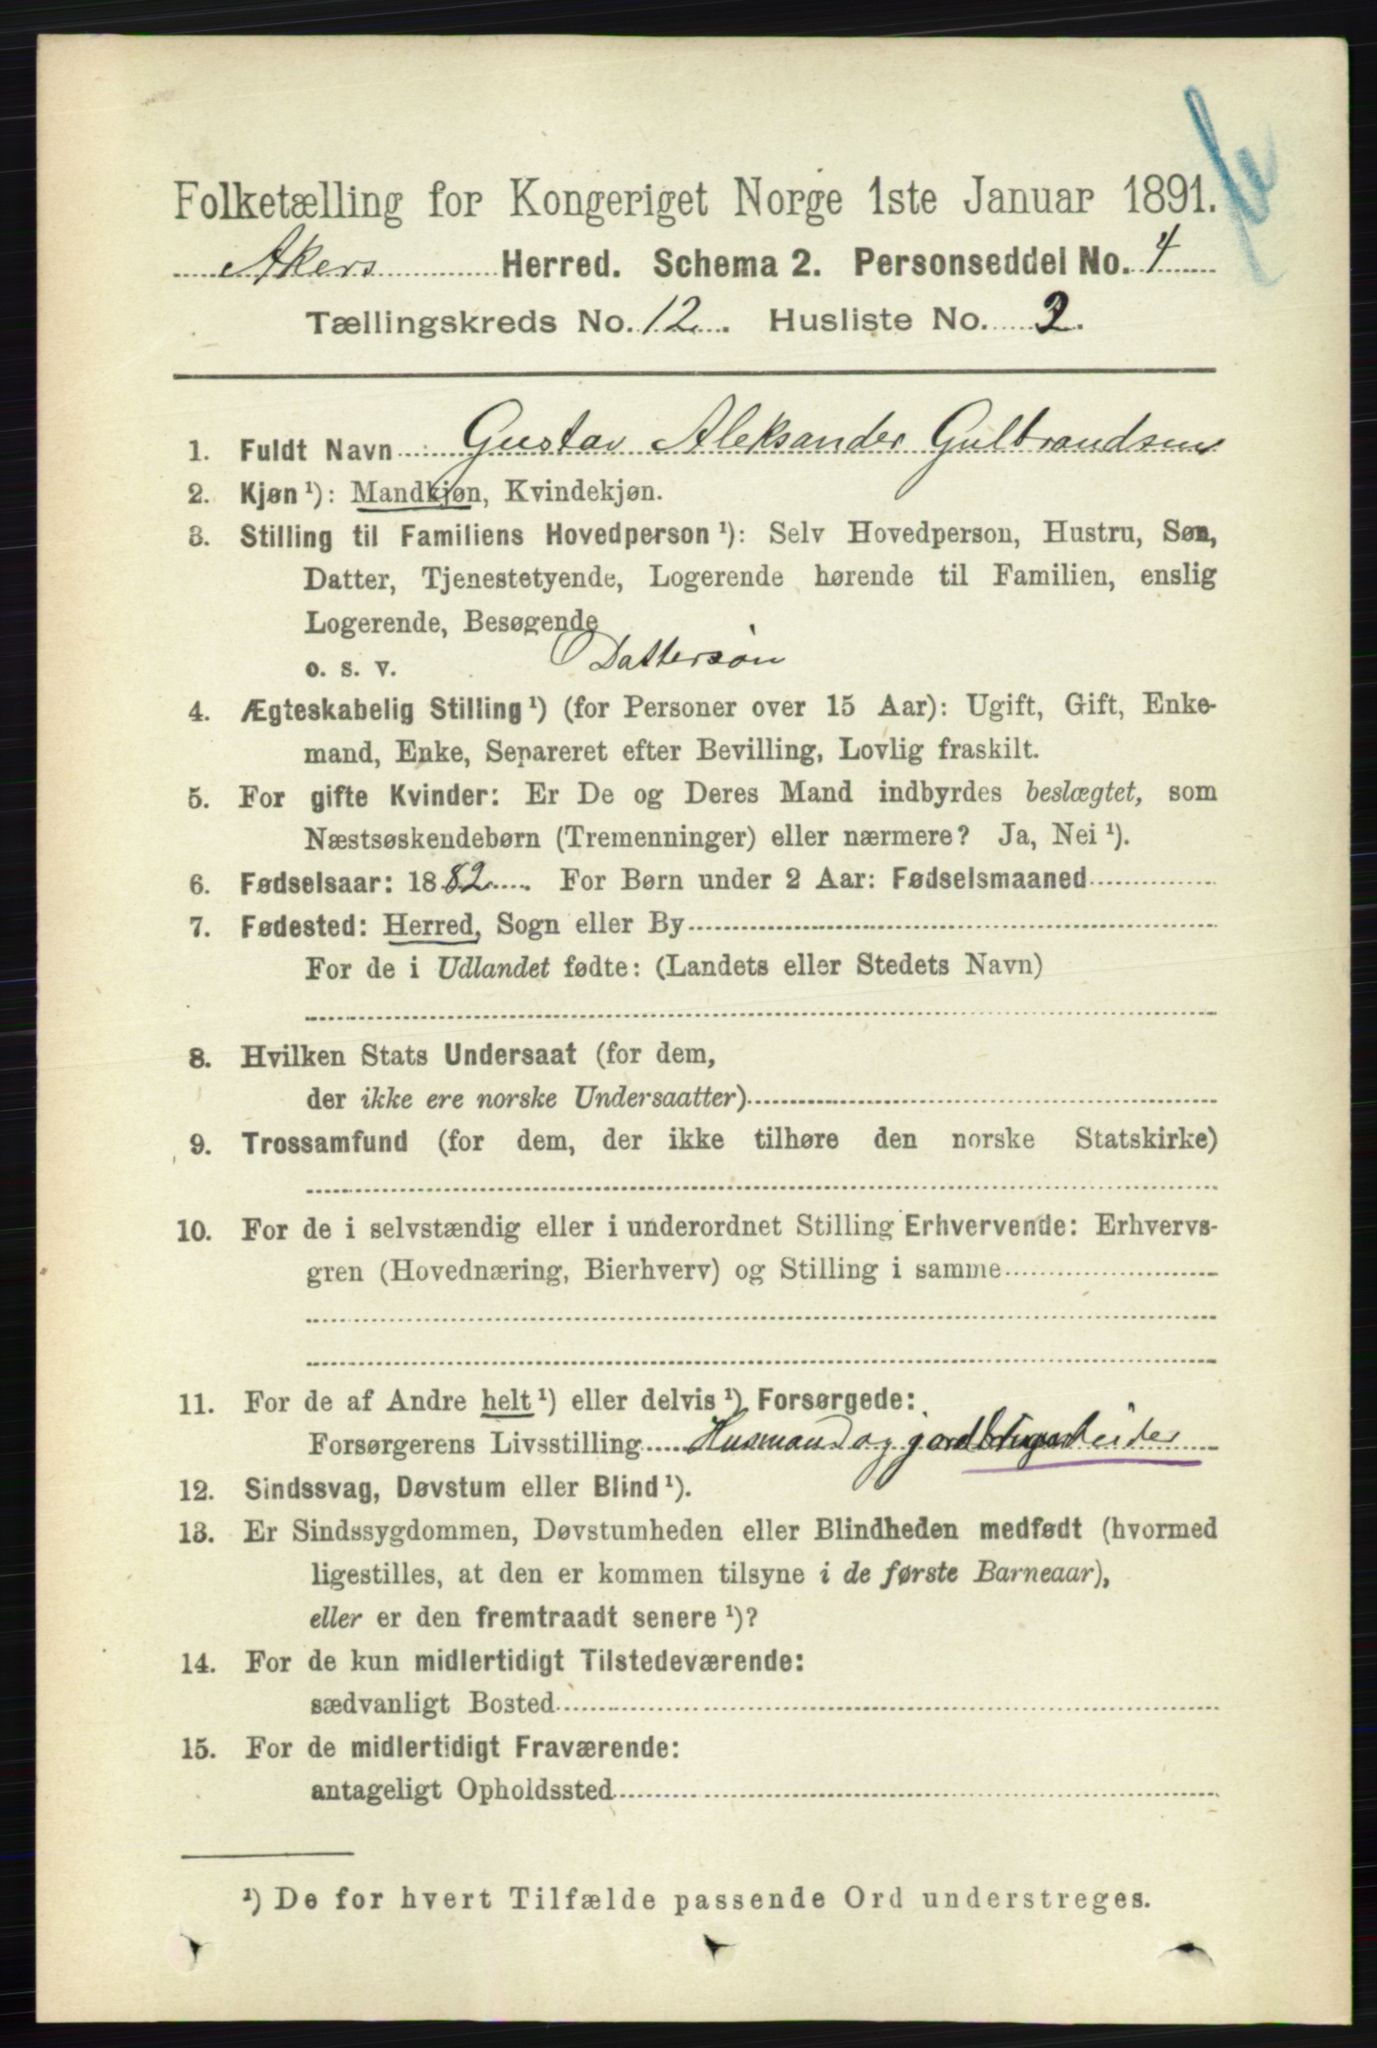 Folketælling for Kongeriget Norge 1ste Januar 1891.
Akers Herred. Schema 2. Personseddel No. 4
Tællingskreds No. 12. Husliste No. 2.
1. Fuldt Navn Gustav Aleksander Gulbrandsen
2. Kjøn ¹): Mandkjøn, Kvindekjøn.
3. Stilling til Familiens Hovedperson ¹): Selv Hovedperson, Hustru, Søn,
Datter, Tjenestetyende, Logerende hørende til Familien, enslig
Logerende, Besøgende
o. s. v. Dattersøn
4. Ægteskabelig Stilling ¹) (for Personer over 15 Aar): Ugift, Gift, Enke-
mand, Enke, Separeret efter Bevilling, Lovlig fraskilt.
5. For gifte Kvinder: Er De og Deres Mand indbyrdes beslægtet, som
Næstsøskendebørn (Tremenninger) eller nærmere? Ja, Nei ¹).
6. Fødselsaar: 1882. For Børn under 2 Aar: Fødselsmaaned
7. Fødested: Herred, Sogn eller By
For de i Udlandet fødte: (Landets eller Stedets Navn)
8. Hvilken Stats Undersaat (for dem,
der ikke ere norske Undersaatter)
9. Trossamfund (for dem, der ikke tilhøre den norske Statskirke)
10. For de i selvstændig eller i underordnet Stilling Erhvervende: Erhvervs-
gren (Hovednæring, Bierhverv) og Stilling i samme
11. For de af Andre helt ¹) eller delvis ¹) Forsørgede:
Forsørgerens Livsstilling Husmand og
12. Sindssvag, Døvstum eller Blind ¹).
13. Er Sindssygdommen, Døvstumheden eller Blindheden medfødt (hvormed
ligestilles, at den er kommen tilsyne i de første Barneaar),
eller er den fremtraadt senere ¹)?
14. For de kun midlertidigt Tilstedeværende:
sædvanligt Bosted
15. For de midlertidigt Fraværende:
antageligt Opholdssted
¹) De for hvert Tilfælde passende Ord understreges.